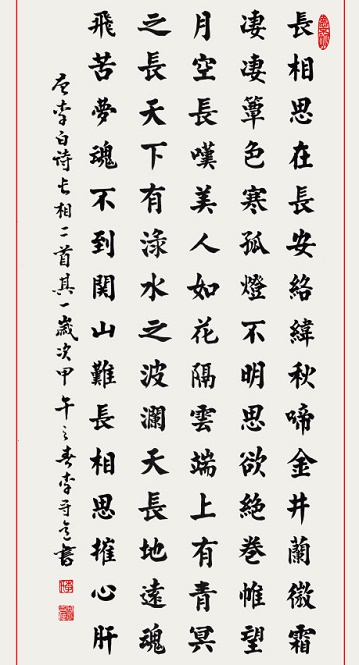 長相思在長安絡緯秋啼金井蘭微霜
凄凄簟色寒孤燈不明思欲絶巻帷望
月空長嘆美人如花隔雲端上有青冥
之長天下有淥水之波瀾天長地遠魂
飛苦夢魂不到関山難長相思摧心肝
唐李白诗长相二首其一歲次甲午之春李守書